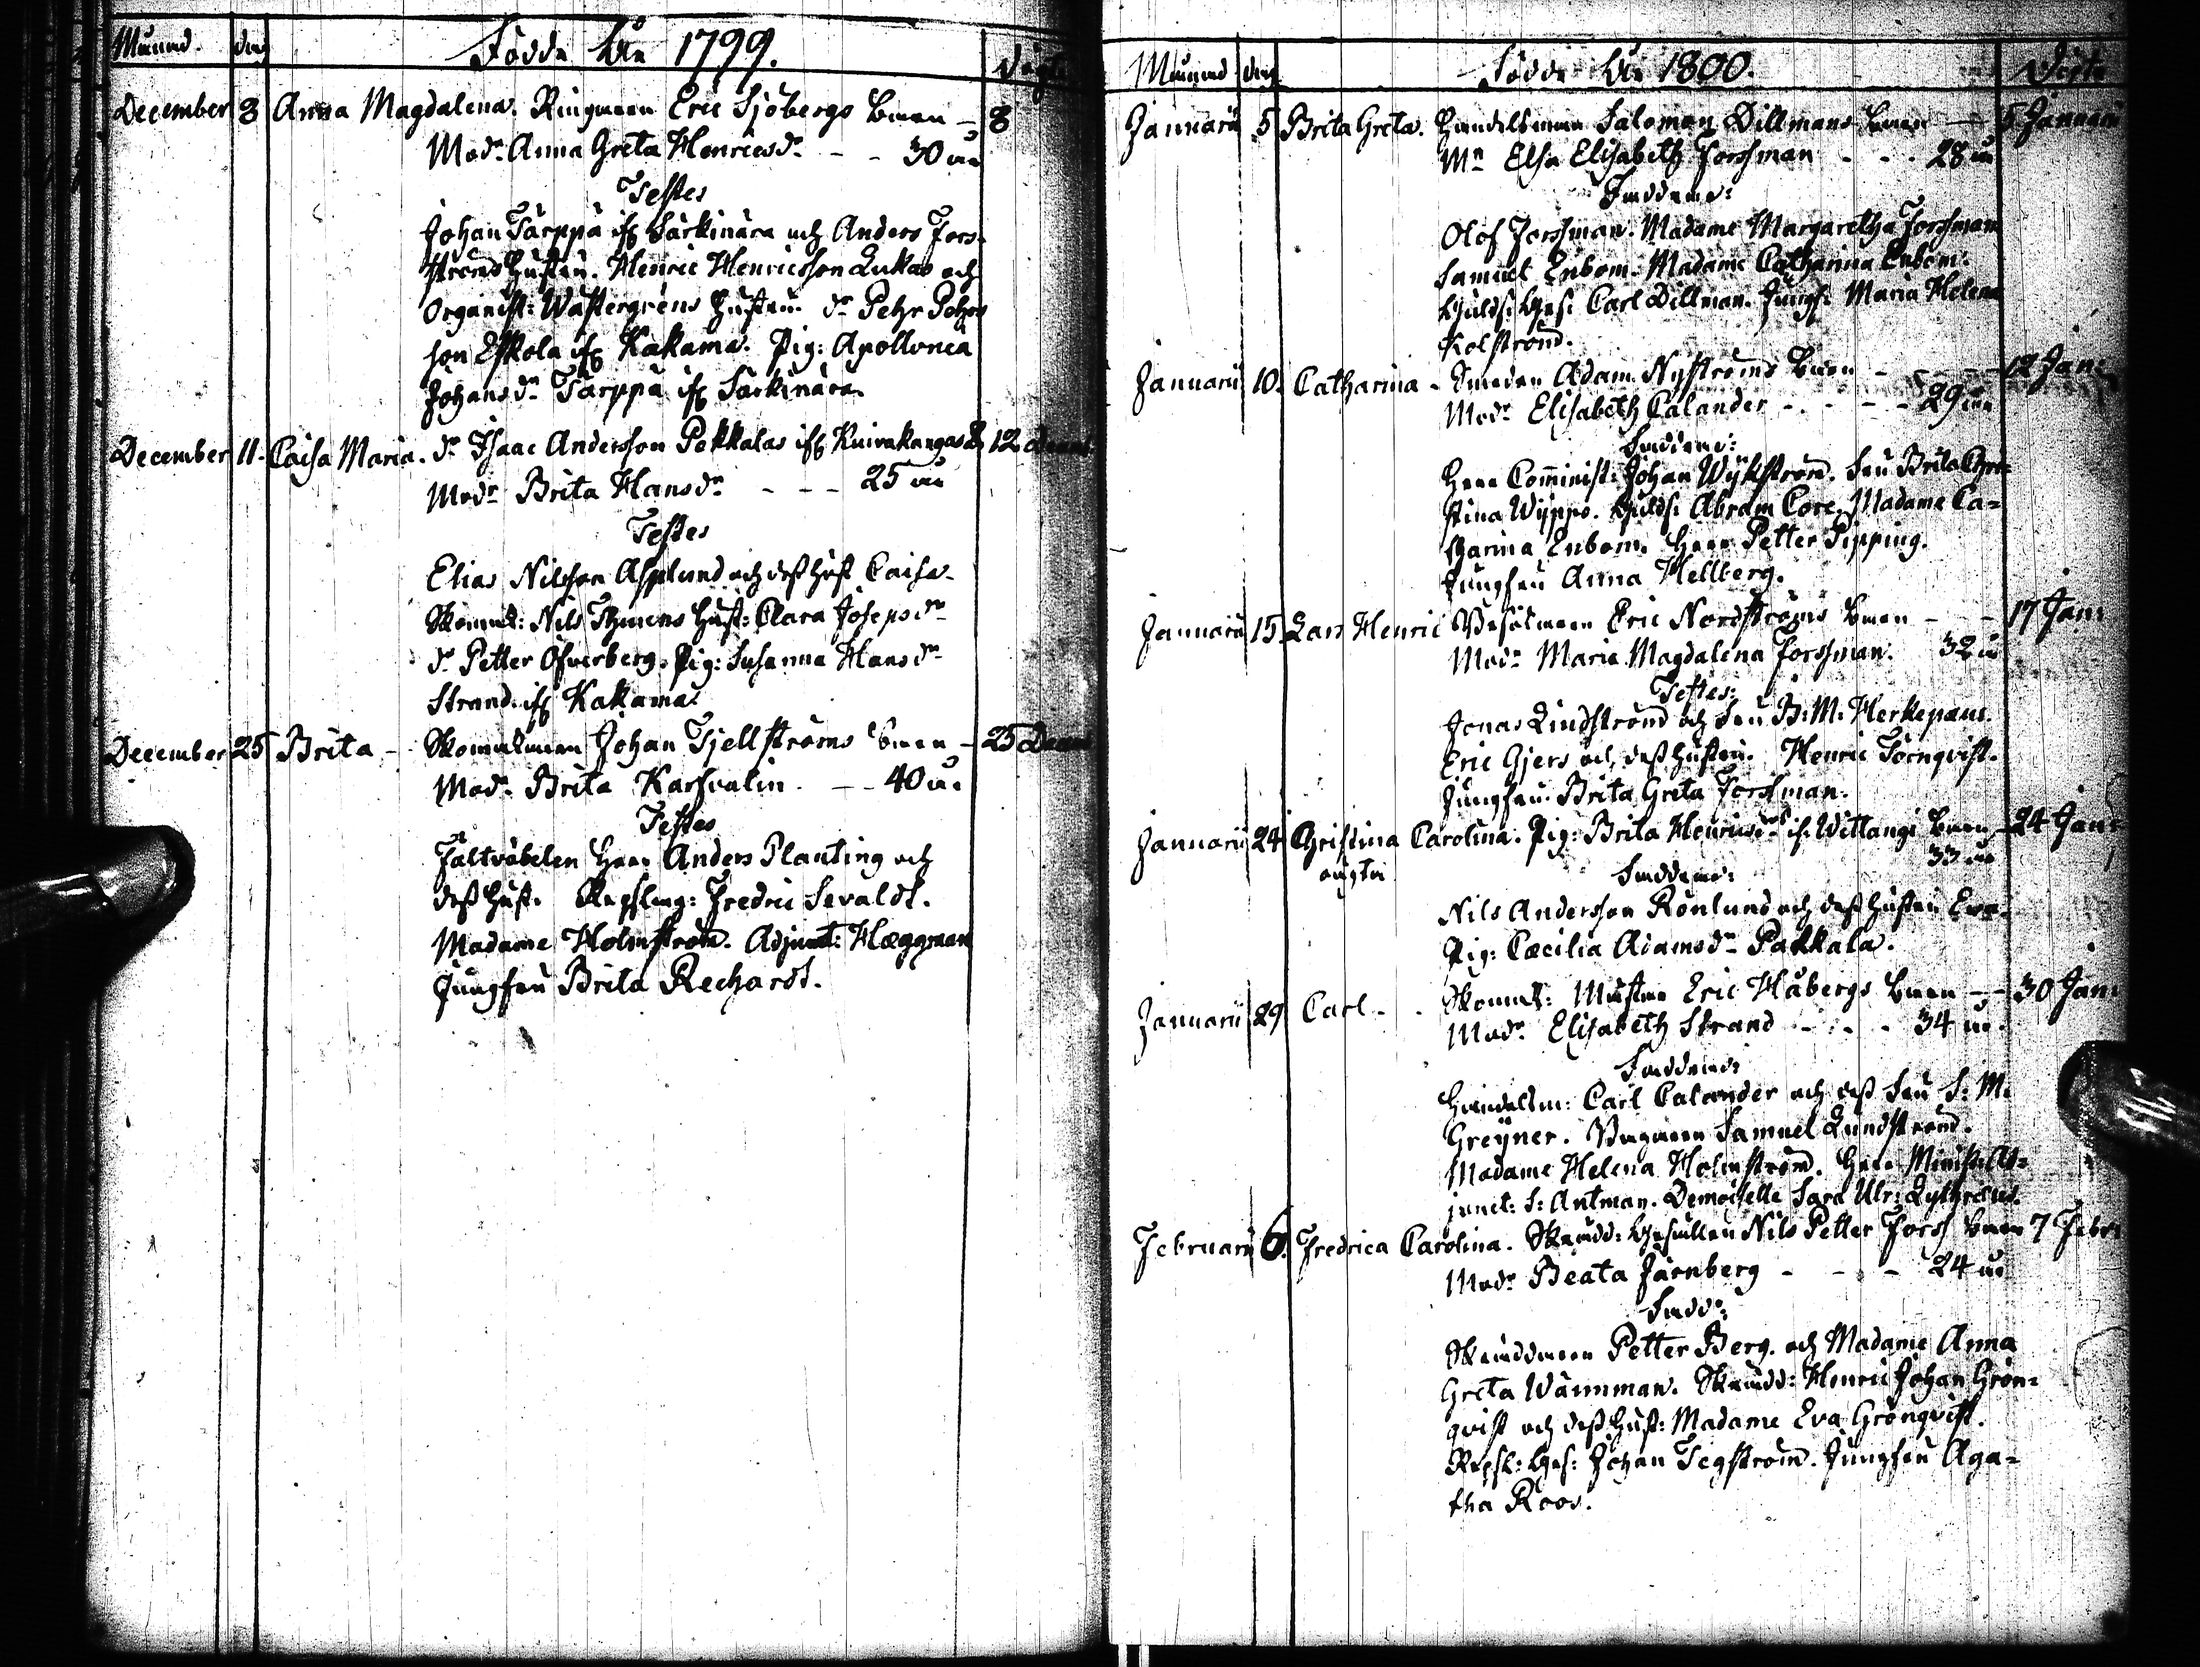 Månad. dag Födde År 1799. Döpte
December 8 Anna Magdalena. Ringaren Eric Sjöbergs barn – 8
Modr. Anna Greta Henricsdr - - 30 år
Testes
Johan Tärppä if Särkinära och Anders Fors-
ströms hustru. Henric Henricsson Lukas och
Organist: Wästergrens hustru. dr. Pehr Pehrs
son Eskola if Kakama. Pig: Apollonia
Johansdr Tärppä if Särkinära.
December 11. Caisa Maria. dr. Isaac Andersson Pekkalas if Kuivakangas B. 12
Modr Brita Hansdr - - - 25 år
Testes
Elias Nilsson Asplund och dess hust Caisa.
Skomak: Nils Thurens hust: Clara Josepsdr
dr. Petter Öfverberg. Pig: Susanna Hansdr
Strand if Kakama.
December 25 Brita - Skomakaren Johan Tjellströms barn – 25 Decem
Modr. Brita Karhvalin. - - 40 år.
Testes
Fältväbelen Herr Anders Planting och
dess hust. Repslag: Fredric Sevaldt.
Madame Holmström. Adjunct: Hæggman
Jungfru Brita Rechardt.
Månad dag Födde År 1800. Döpte
Januarii 5 Brita Greta. Handelsman Salomon Dillmans barn – 5 Januarii
Mr Elsa Elisabeth Forssman - - - 28 år
Faddrar:
Olof Forssman. Madame Margaretha Forssman
Samuel Enbom. Madame Catharina Enbom.
Gulds: Ges: Carl Dillman. Jungf: Maria Helena
Kolström.
Januarii 10. Catharina - Smeden Adam Nyströms barn - 12 Jan:
Modr Elisabeth Calander - - - - 29 år
Faddrar:
Herr Comminist: Johan Wijkström. Fru Brita Chri-
stina Wijppo. Gulds: Abram Core. Madame Ca-
tharina Enbom. Herr Petter Pipping.
Jungfru Anna Hellberg.
Januarii 15. Lars Henric Eric Nordströms barn - - 17 Jan:
Modr Maria Magdalena Forssman. 32 år
Testes:
Jonas Lindström och Fru B: M: Herkepæus.
Eric Gjers och dess hustru. Henric Törnqvist.
Jungfru Brita Greta Forssman.
Januarii 24 Christina Carolina. Pig: Brita Henricsdr if Wittangi barn – 24 Jan:
oägta 33 år
Faddrar:
Nils Andersson Rönlund och dess hustru Eva.
Pig: Cæcilia Adamsdr Pakkala.
Januarii 29 Carl - - Skomak: Mästare Eric Håbergs barn – 30 Jan:
Modr. Elisabeth Strand - - - 34 år.
Faddrar:
Handelsm: Carl Calander och dess Fru S: M:
Greijner. Samuel Lundström.
Madame Helena Holmström. Herr Minist: Ad-
junct: S: Antman. Demoiselle Sara Ulr: Lythræus.
Februarii 6. Fredrica Carolina. Skrädd: Gesällen Nils Petter Forss barn 7 Febr:
Modr Beata Järnberg - - - 24 år
Fadd:
Skräddaren Petter Berg. och Madame Anna
Greta Wännman. Skrädd: Henric Johan Grön-
qvist och dess hust: Madame Eva Grönqvist.
Repsl: Ges: Johan Tegström. Jungfru Aga-
tha Roos.